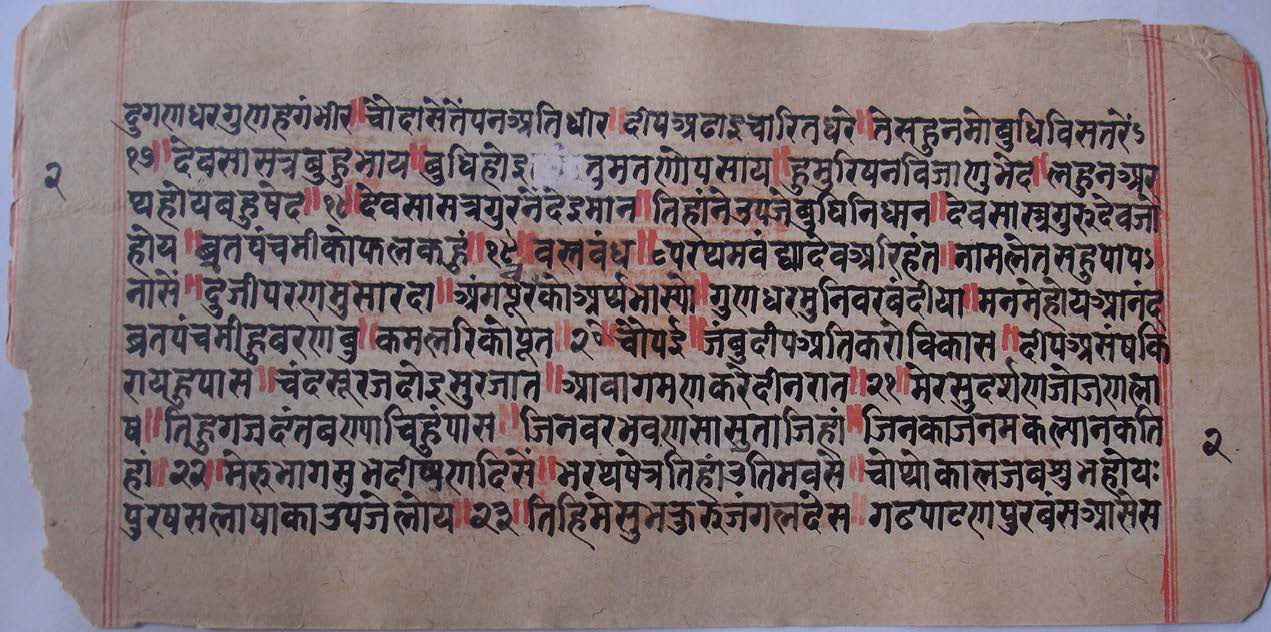 दुगणधरगुणहगंभीर॥चौदासेतेंपनअतिधीर॥दीपअढाइचारितधरे॥तेसहुनमोबुधिविसतरेंऽ
२ १७॥देवसासत्रबुहुभाय॥बुधिहोइ तुमतणोपसाय॥हुमुरिषनविजाणुभेद॥लहुनअर
ष्यहोयबहुषेदे॥१८॥देवसासत्रगुरनंदेइमान॥तिहांनेउपजेबुधिनिधान॥देवसास्त्रगुरुदेवजो
होय॥ब्रतपंचमीकोफलकहुं॥१९॥वस्तबंध॥ परथमवंद्यादेवअरिहंत॥नामलेतसहुपापऽ
नासें॥दुजीपरणमुसारदा॥अंगपूरकोअर्थभास्यो॥गुणधरमुनिवरवंदीया॥मनमेहोयआनंद
ब्रतपंचमीहुवरणवु॥कमलरिकोपूत॥२०॥चौपई॥जंबुदीपअतिकरोविकास॥दीपअसंषकि
रायहूपास॥चंदसूरजदोइसुरजात॥आवागमणकरेदीनरात॥२१॥मेरसुदर्शणजोजणला
ष॥तिहुगजदंतवण्णाचिहुंपास॥जिनवरभवणसासुताजिहां॥जिनकाजनमकल्यानकति २
हां॥२२॥मेरुभागसुभदीष्यणदिसें॥भरथषेत्रतिहांउतिमवसे॥चोथोकालजबशुभहोयः
पुरषसलाषाकाउपजेलोय॥२३॥तिहिमेसुभकुरुजंगलदेस॥गढपाटणपुरबंसअासेस